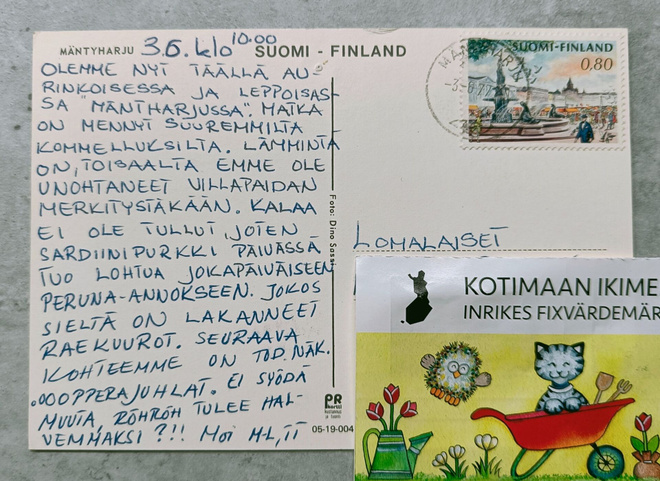 MÄNTYHARJU 3.6. klo 10.00 SUOMI - FINLAND
OLEMME NYT TÄÄLLÄ AU-
RINKOISESSA JA LEPPOISAS-
SA "MÄNTHARJUSSA". MATKA
ON MENNYT SUUREMMILTA
KOMMELLUKSILTA. LÄMMINTÄ
ON, TOISAALTA EMME OLE
UNOHTANEET VILLAPAIDAN
MERKITYSTÄKÄÄN. KALAA
EI OLE TULLUT, JOTEN
SARDIINIPURKKI PÄIVÄSSÄ
TUO LOHTUA JOKAPÄIVÄISEEN
PERUNA-ANNOKSEEN. JOKOS
SIELTÄ ON LAKANNEET
RAEKUUROT. SEURAAVA
KOHTEEMME ON TOD. NÄK.
.OOOPPERAJUHLAT. EI SYÖDÄ
MUUTA, RÖHRÖH TULEE HAL-
VEMMAKSI ?!! Moi M-L, II
Foto: Dino Sassi
PR
05-19-004
SUOMI-FINLAND
0,80
LOMALAISET
KOTIMAAN IKIME
INRIKES FIXVÄRDEMÄR